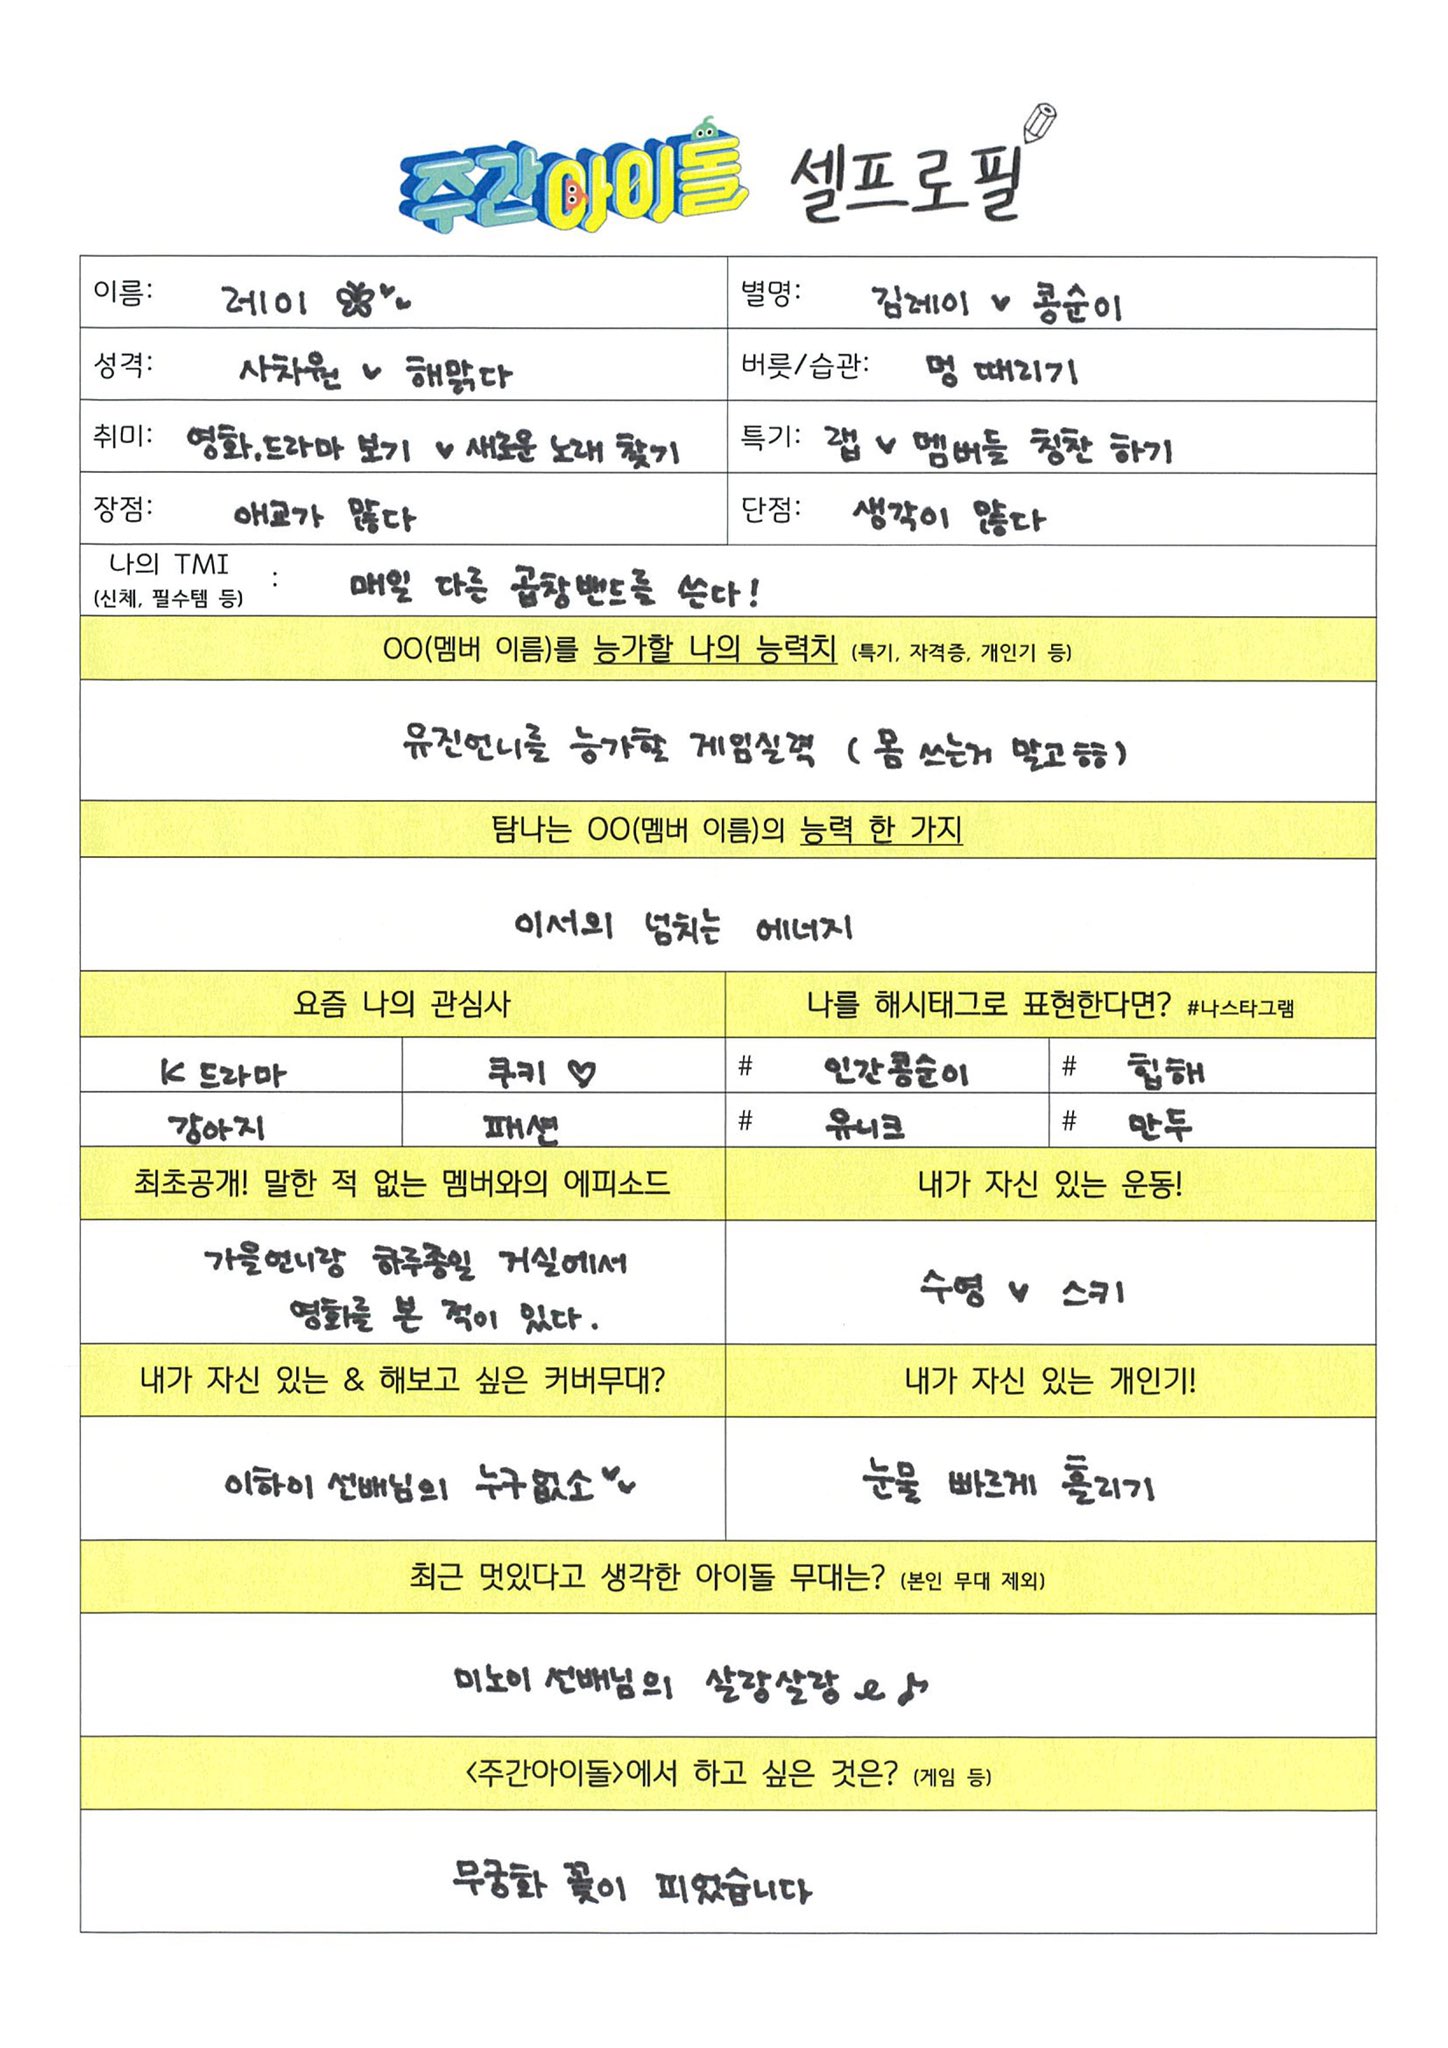 주간아이돌 셀프로필
이름: 레이
별명: 김레이 ♥ 콩순이
성격: 사차원 ♥ 해맑다
버릇/습관: 멍 때리기
취미: 영화,드라마 보기 ♥ 새로운 노래 찾기
특기: 랩 ♥ 멤버들 칭찬 하기
장점: 애교가 많다
단점: 생각이 많다
나의 TMI
(신체, 필수템 등) : 매일 다른 곱창밴드를 쓴다!
OO(멤버 이름)를 능가할 나의 능력치 (특기, 자격증, 개인기 등)
유진언니를 능가할 게임실력 (몸 쓰는거 말고ㅎㅎ)
탐나는 OO(멤버 이름)의 능력 한 가지
이서의 넘치는 에너지
요즘 나의 관심사
K 드라마
쿠키 ♡
강아지
패션
나를 해시태그로 표현한다면? #나스타그램
# 인간콩순이
# 힙해
# 유니크
# 만두
최초공개! 말한 적 없는 멤버와의 에피소드
가을언니랑 하루종일 거실에서
영화를 본 적이 있다.
내가 자신 있는 운동!
수영 ♥ 스키
내가 자신 있는 & 해보고 싶은 커버무대?
이하이 선배님의 누구없소
내가 자신 있는 개인기!
눈물 빠르게 흘리기
최근 멋있다고 생각한 아이돌 무대는? (본인 무대 제외)
미노이 선배님의 살랑살랑 ♪
<주간아이돌>에서 하고 싶은 것은? (게임 등)
무궁화 꽃이 피었습니다